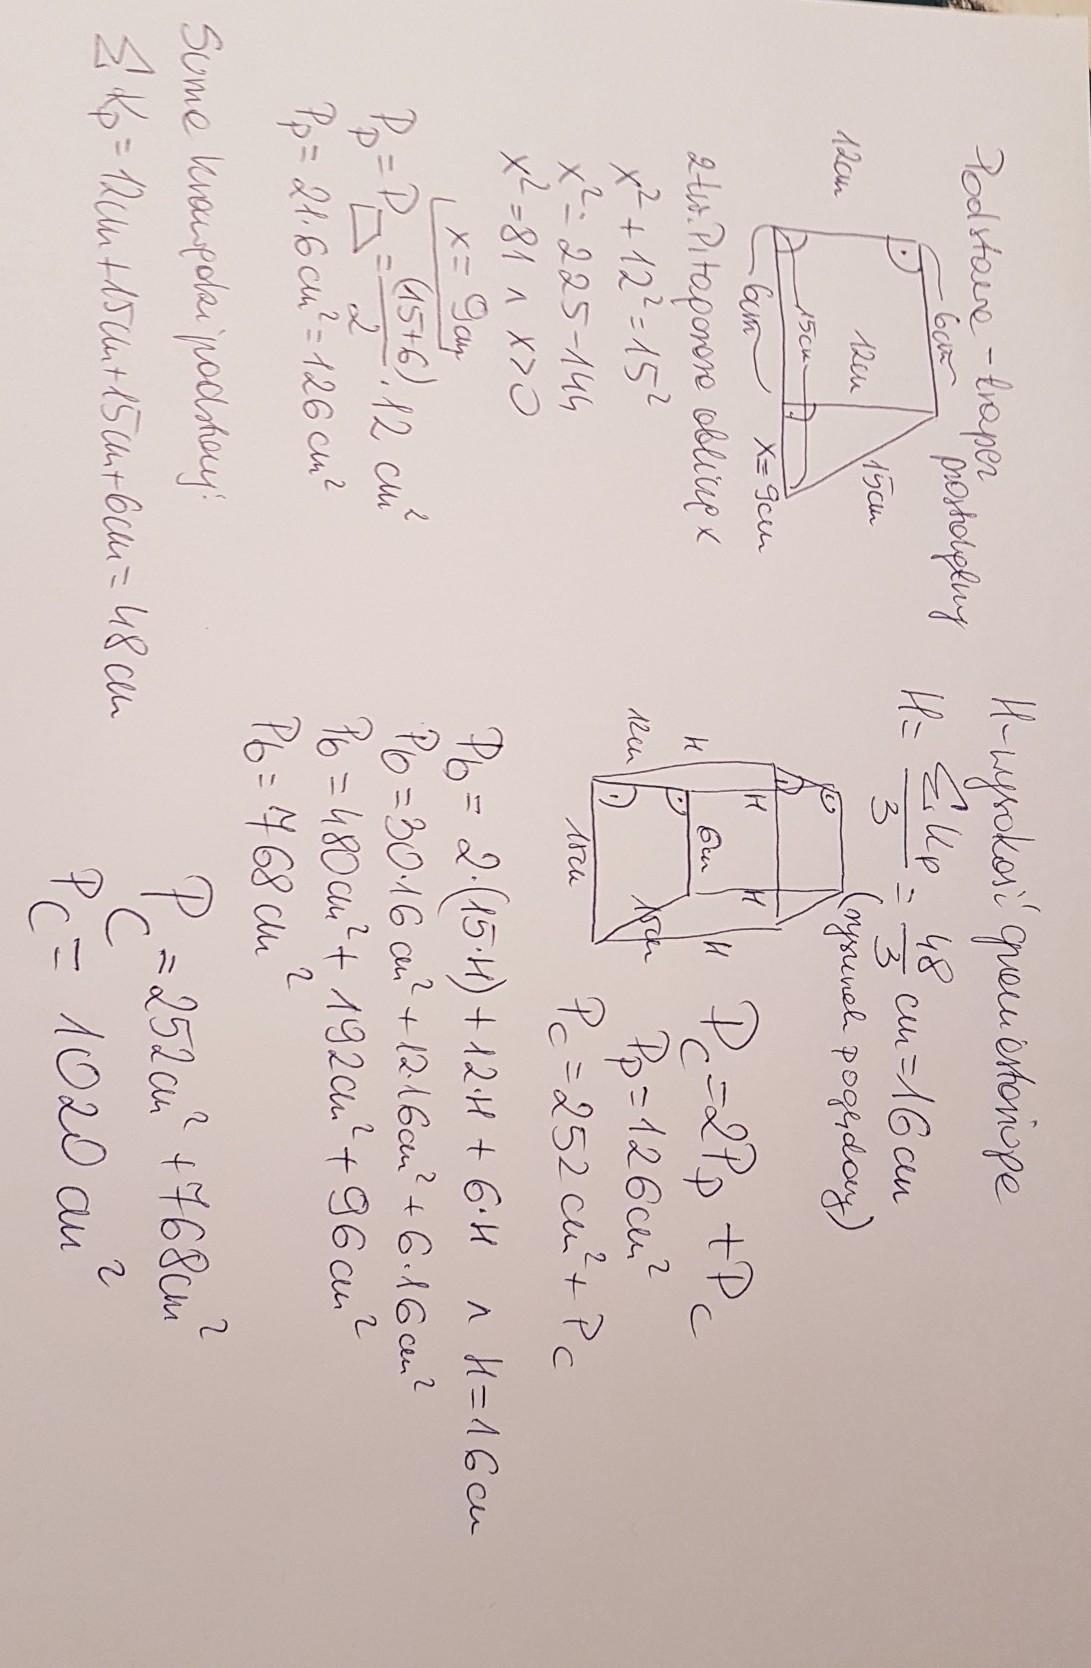 Podstawa - trapez
prostokątny
6cm
12cm
12cm
15cm
15cm
6cm
x=9cm
z tw. Pitagorasa obliczę x
x² + 12² = 15²
x² = 225 - 144
x² = 81 ∧ x>0
x = 9cm
Pp = P = (15+6)/2 · 12 cm²
Pp = 21·6cm² = 126cm²
Suma krawędzi podstawy:
Σ Kp = 12cm+15cm+15cm+6cm = 48cm
H - wysokość graniastosłupa
H = ΣKp/3 = 48/3 cm = 16cm
(rysunek poglądowy)
H
H
H
H
12cm
6cm
15cm
15cm
Pc = 2Pp + Pc
Pp = 126cm²
Pc = 252cm² + Pc
Pb = 2·(15·H) + 12·H + 6·H ∧ H = 16cm
Pb = 30·16cm² + 12·16cm² + 6·16cm²
Pb = 480cm² + 192cm² + 96cm²
Pb = 768cm²
Pc = 252cm² + 768cm²
Pc = 1020cm²